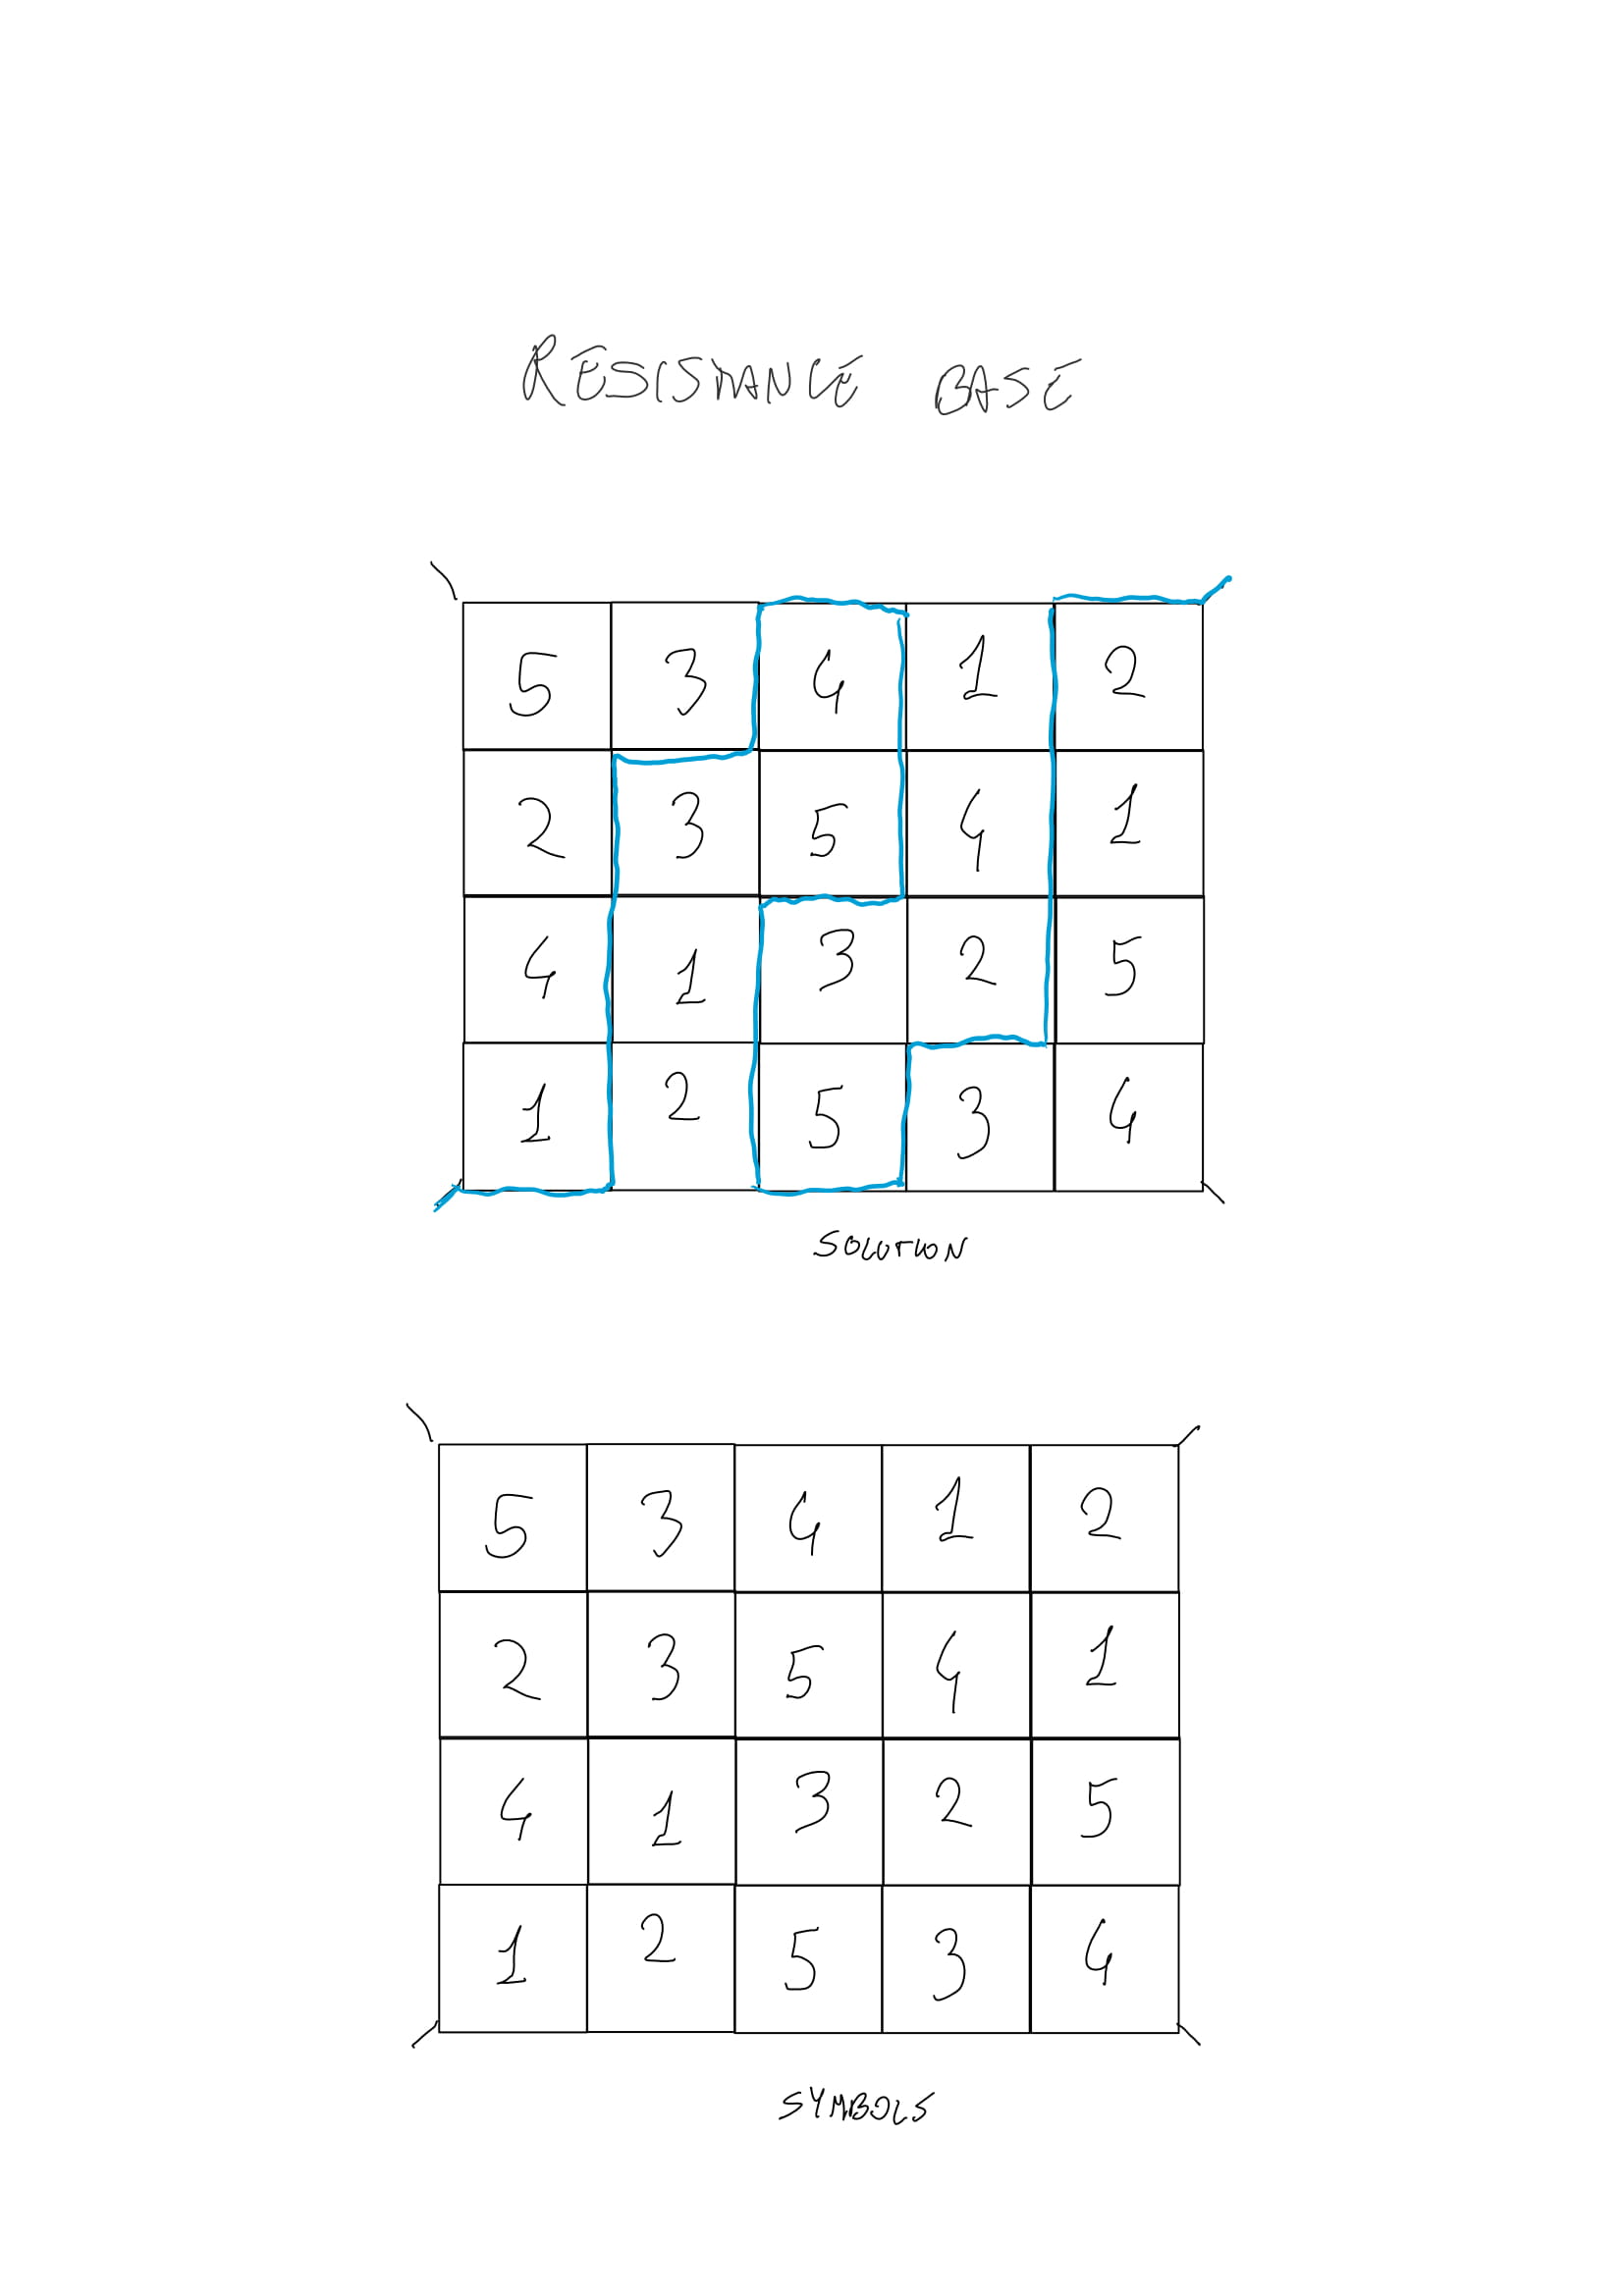 RESISTANCE BASE
5 3 4 1 2
2 3 5 4 1
4 1 3 2 5
1 2 5 3 4
SOLUTION
5 3 4 1 2
2 3 5 4 1
4 1 3 2 5
1 2 5 3 4
SYMBOLS